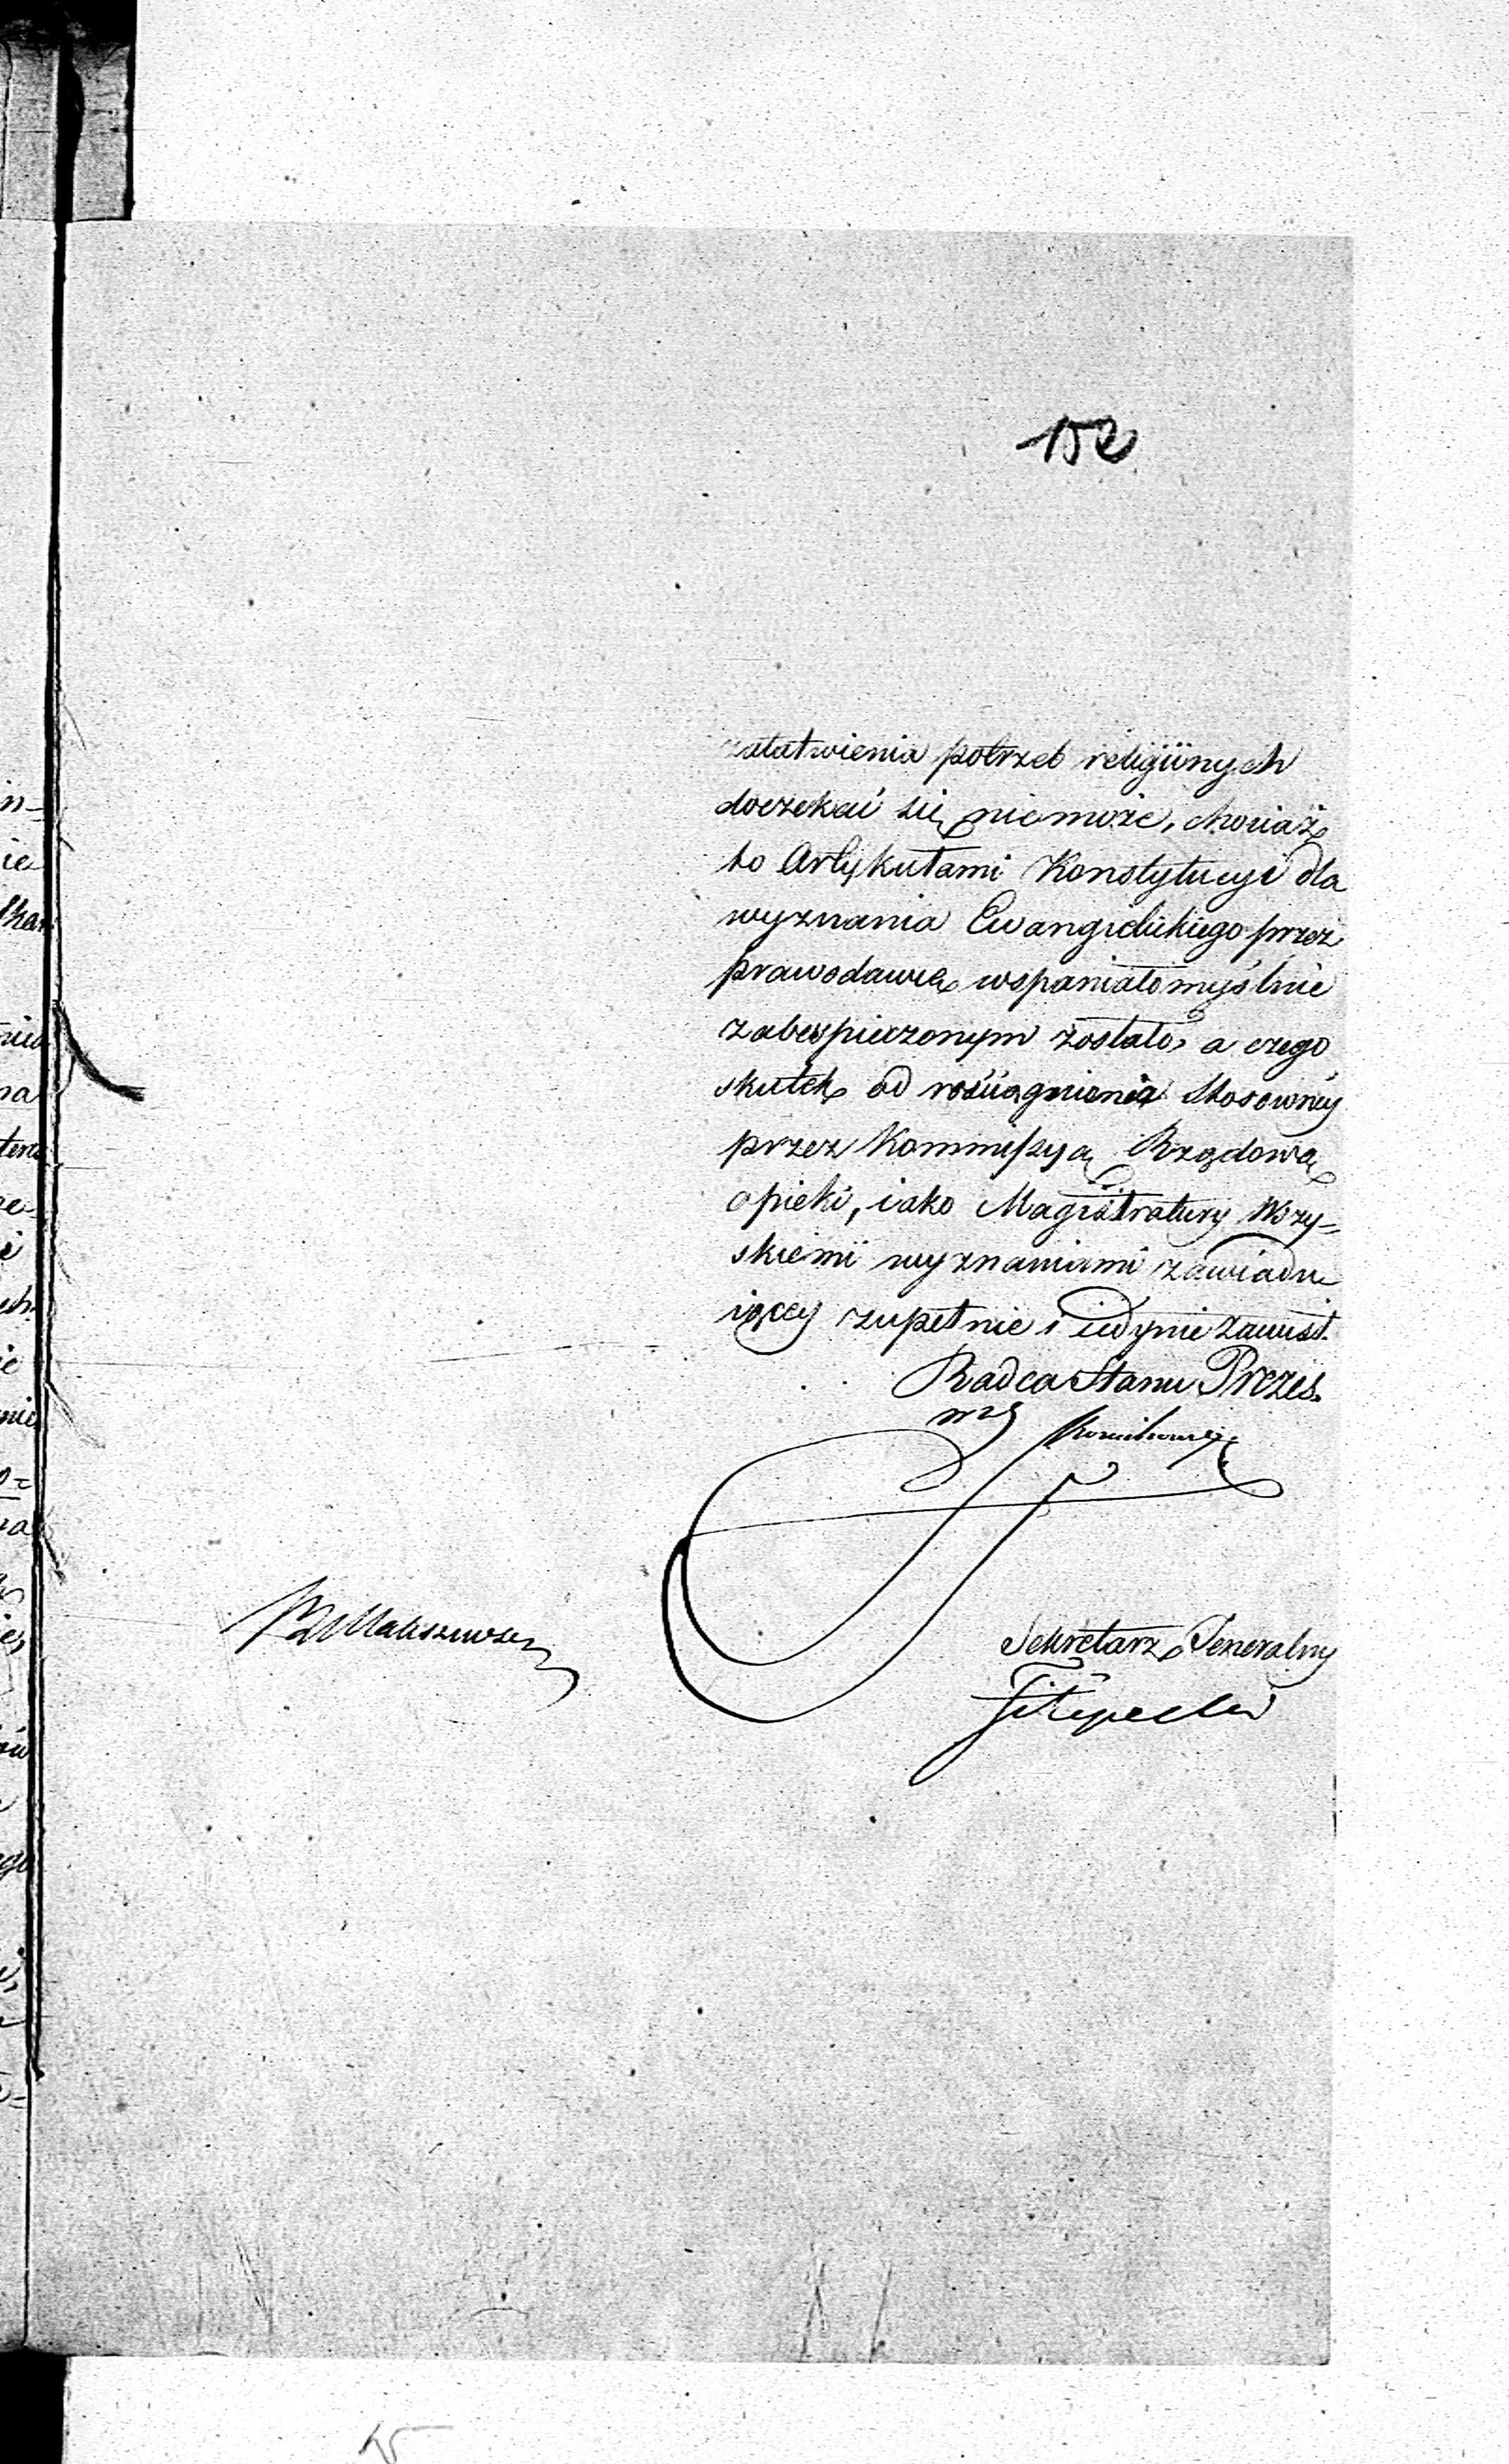 152
załatwienia potrzeb religiinych
doczekać się niemoże, chociaż
to Artykułami Konstytucyi dla
wyznania Ewangielickiego przez
prawodawcę wspaniałomyślnie
zabespieczonym zostało, a czego
skutek od rościągnienia stosowney
przez Kommissyą Rządową
opieki, iako Magistratury Wszy-
skiemi wyznaniami zawiadu
iącey zupełnie i iedynie zawisł.
Radca Stanu Prezes
Sekretarz Generalny
Filipecki